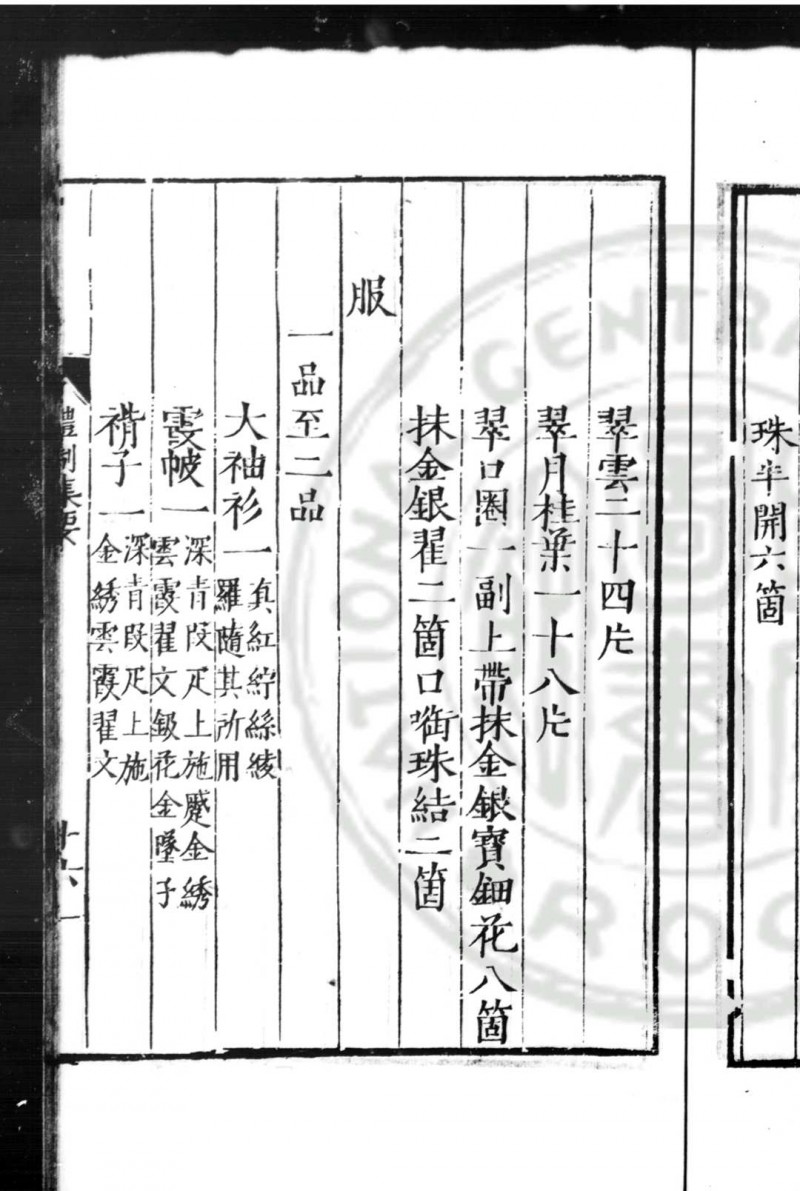 珠半開六箇
翠雲二十四片
翠月桂葉一十八片
翠口圈一副上帶抹金銀寶鈿花八箇
抹金銀翟二箇口啣珠結二箇
服
一品至二品
大袖衫一真紅紵絲綾
羅隨其所用
霞帔一深青段疋上施蹙金綉
雲霞翟文鈒花金墜子
褙子一深青段疋上施
金綉雲霞翟文
禮制集要
十六
CENTRA